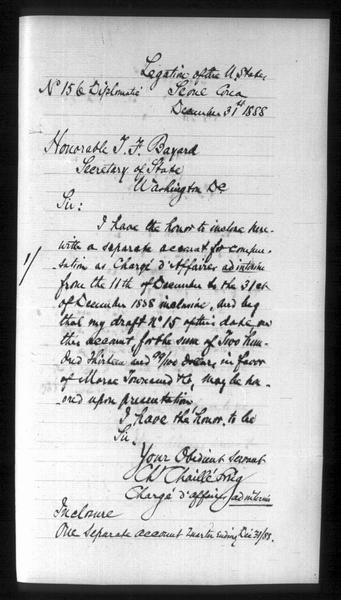 Legation of the U. States
No 156 Diplomatic Seoul Corea
December 31st 1888
Honorable T. F. Bayard
Secretary of State
Washington DC
Sir:
I have the honor to inclose here-
with a separate account for compen-
1/ sation as Chargé d'Affaires ad interim
from the 11th of December to the 31st
of December 1888 inclusive, and beg
that my draft No 15 of this date, on
this account, for the sum of Two hun-
dred thirteen and 99/100 dollars, in favor
of Morse Townsend & Co, may be ho-
ored upon presentation
I have the honor, to be
Sir
Your Obedient Servant
Ch Chaillé Long
Chargé d'Affaires ad interim
Inclosure
One separate account Quarter ending Dec 31/88.